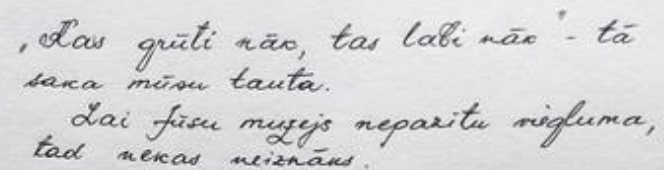 „Kas grūti nāk, tas labi nāk" - tā
saka mūsu tauta.
Lai Jūsu muzejs nepazītu viegluma,
tad nekas neiznāks.